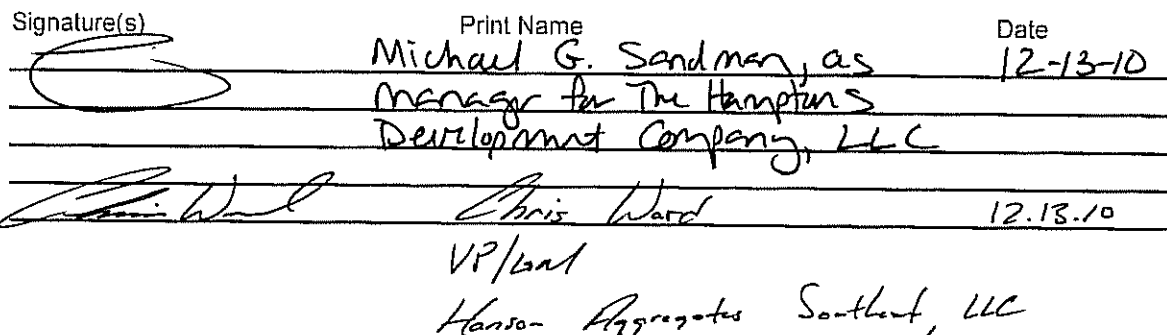 Signature(s) Print Name Date
Michael G. Sandman, as 12-13-10
manager for The Hamptons
Development Company, LLC
Chris Ward Chris Ward 12.13.10
VP/GM
Hanson Aggregates Southeast, LLC